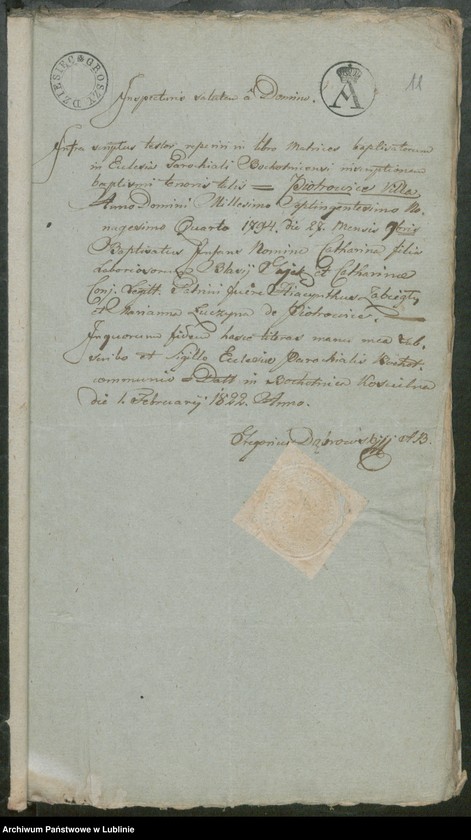 DZIESIĘĆ GROSZY
A
11
Inspecturis salutem à Domino.
Infra scriptus testor reperiri in libro Matrices baptisatorum
in Ecclesia Parochiali Bochotnicensi inscriptionem
baptismi tenoris talis = Piotrowice Villa
Anno Domini Millesimo Septingentesimo No-
nagesimo Quarto 1794. die 27. Mensis
Baptisatus Infans Nomine Catharina filia
Laboriosorum Blasij et Catharina
Conj. Legitt. Patrini fuere Hiacynthus
et Marianna Luczyna de Piotrowice.
In quorum fidem hasce literas manu mea sub-
scribo et Sigillo Ecclesiæ Parochialis Bochot.
communio Datt in Bochotnica Kościelna
die 1. Februarij 1822. Anno.
Gregorius Dąbrowski
Archiwum Państwowe w Lublinie